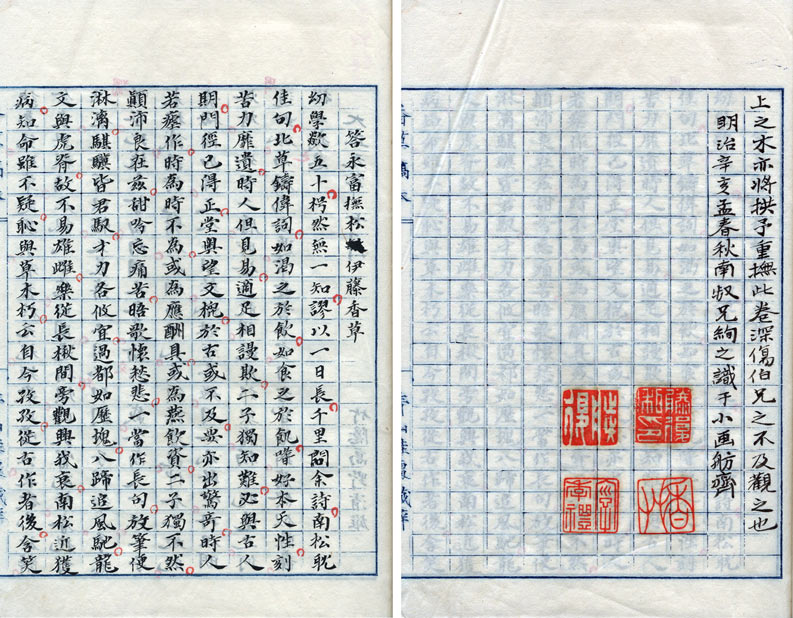 上之木亦將拱予重撫此卷深傷伯兄之不及觀之也
明治辛亥孟春秋南叔兄絢之識于小画舫齋
答永富撫松伊藤香草
幼學歘五十愕然無一知謬以一日長千里問余詩南松耽
佳句北草鑄偉詞如渴之於飲如食之於飢嗜好本天性刻
苦力靡遺時人但見易適足相謾欺二子獨知難必與古人
期門徑已得正堂奧望文於古或不及要亦出驚奇時人
若瘧作時為時不為或為應酬具或為燕飲資二子獨不然
顛沛良在茲甜吟忘痛苦晤歌懷愁悲一當作長句放筆便
淋漓騏驥皆君馭才力各攸宜過都如歷塊八蹄追風馳龍
文與虎脊故不易雄雌樂從長楸間旁觀興我衰南松近獲
病知命雖不疑恥與草木朽云自今孜孜從古作者後含笑